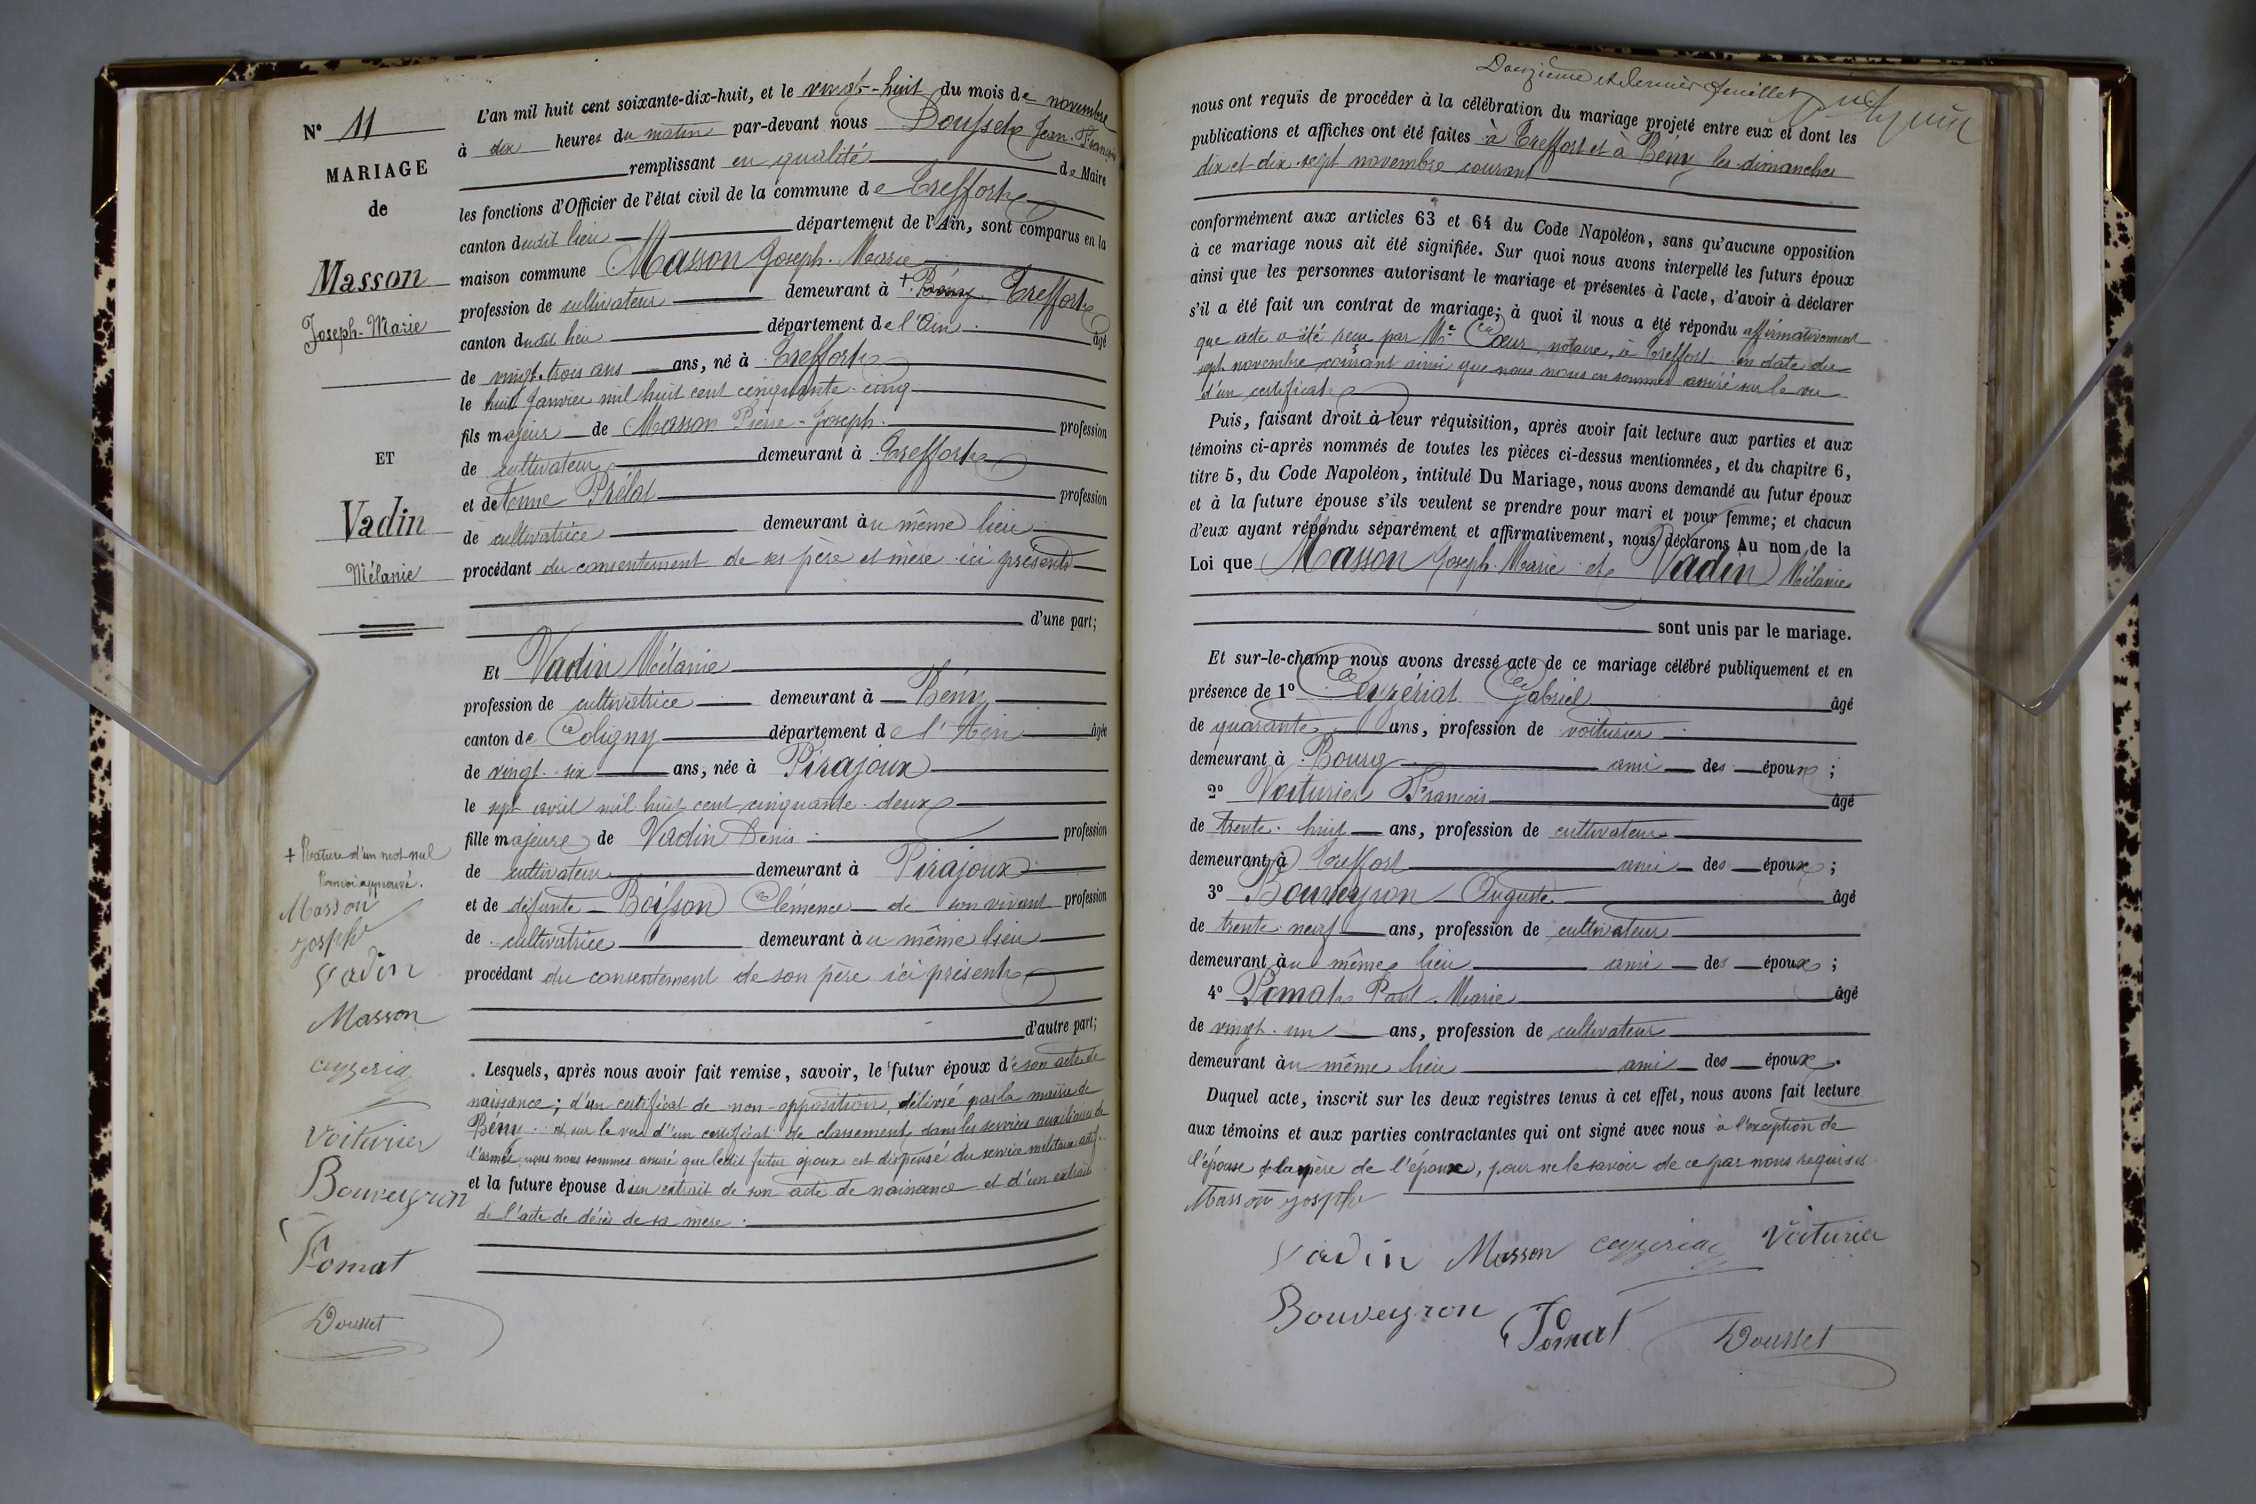 N° 11
MARIAGE
de
Masson
Joseph-Marie
ET
Vadin
Mélanie
+ Rature d'un mot nul
Renvoi approuvé.
Masson
joseph
Vadin
Masson
ceyzeria
Voiturier
Bouveyron
Pomat
Dousset
L'an mil huit cent soixante-dix-huit, et le vingt-huit du mois de novembre
à dix heures du matin par-devant nous Dousset Jean-François
remplissant en qualité de Maire
les fonctions d'Officier de l'état civil de la commune de Treffort
canton dudit lieu département de l'Ain, sont comparus en la
maison commune Masson Joseph-Marie
profession de cultivateur demeurant à + Bény Treffort
canton dudit lieu département de l'Ain âgé
de vingt-trois ans ans, né à Treffort
le huit janvier mil huit cent cinquante-cinq
fils majeur de Masson Pierre-Joseph profession
de cultivateur demeurant à Treffort
et de Prélat profession
de cultivatrice demeurant au même lieu
procédant du consentement de ses père et mère ici présents
d'une part;
Et Vadin Mélanie
profession de cultivatrice demeurant à Bény
canton de Coligny département de l'Ain âgée
de vingt-six ans, née à Pirajoux
le sept avril mil huit cent cinquante-deux
fille majeure de Vadin Denis profession
de cultivateur demeurant à Pirajoux
et de défunte Boisson Clémence de son vivant profession
de cultivatrice demeurant au même lieu
procédant du consentement de son père ici présent
d'autre part;
Lesquels, après nous avoir fait remise, savoir, le futur époux de son acte de
naissance; d'un certificat de non-opposition, délivré par la mairie de
Bény et sur le vu d'un certificat de classement dans les services auxiliaires de
l'armée nous nous sommes assuré que ledit futur époux est dispensé du service militaire actif.
et la future épouse d'un extrait de son acte de naissance et d'un extrait
de l'acte de décès de sa mère.
Douzième et dernier feuillet
nous ont requis de procéder à la célébration du mariage projeté entre eux et dont les
publications et affiches ont été faites à Treffort et à Bény les dimanches
dix et dix-sept novembre courant
conformément aux articles 63 et 64 du Code Napoléon, sans qu'aucune opposition
à ce mariage nous ait été signifiée. Sur quoi nous avons interpellé les futurs époux
ainsi que les personnes autorisant le mariage et présentes à l'acte, d'avoir à déclarer
s'il a été fait un contrat de mariage; à quoi il nous a été répondu affirmativement
que acte a été reçu par Me Cœur, notaire, à Treffort en date du
sept novembre courant ainsi que nous nous en sommes assuré sur le vu
d'un certificat
Puis, faisant droit à leur réquisition, après avoir fait lecture aux parties et aux
témoins ci-après nommés de toutes les pièces ci-dessus mentionnées, et du chapitre 6,
titre 5, du Code Napoléon, intitulé Du Mariage, nous avons demandé au futur époux
et à la future épouse s'ils veulent se prendre pour mari et pour femme; et chacun
d'eux ayant répondu séparément et affirmativement, nous déclarons Au nom de la
Loi que Masson Joseph-Marie et Vadin Mélanie
sont unis par le mariage.
Et sur-le-champ nous avons dressé acte de ce mariage célébré publiquement et en
présence de 1° Ceyzériat Gabriel âgé
de quarante ans, profession de voiturier
demeurant à Bourg ami des époux ;
2° Voiturier François âgé
de trente-huit ans, profession de cultivateur
demeurant à Treffort ami des époux ;
3° Bouveyron Auguste âgé
de trente-neuf ans, profession de cultivateur
demeurant au même lieu ami des époux ;
4° Pomat Paul-Marie âgé
de vingt-un ans, profession de cultivateur
demeurant au même lieu ami des époux.
Duquel acte, inscrit sur les deux registres tenus à cet effet, nous avons fait lecture
aux témoins et aux parties contractantes qui ont signé avec nous à l'exception de
l'épouse et la mère de l'époux, pour ne le savoir de ce par nous requises
Masson joseph
Vadin Masson ceyzeria Voiturier
Bouveyron Pomat Dousset